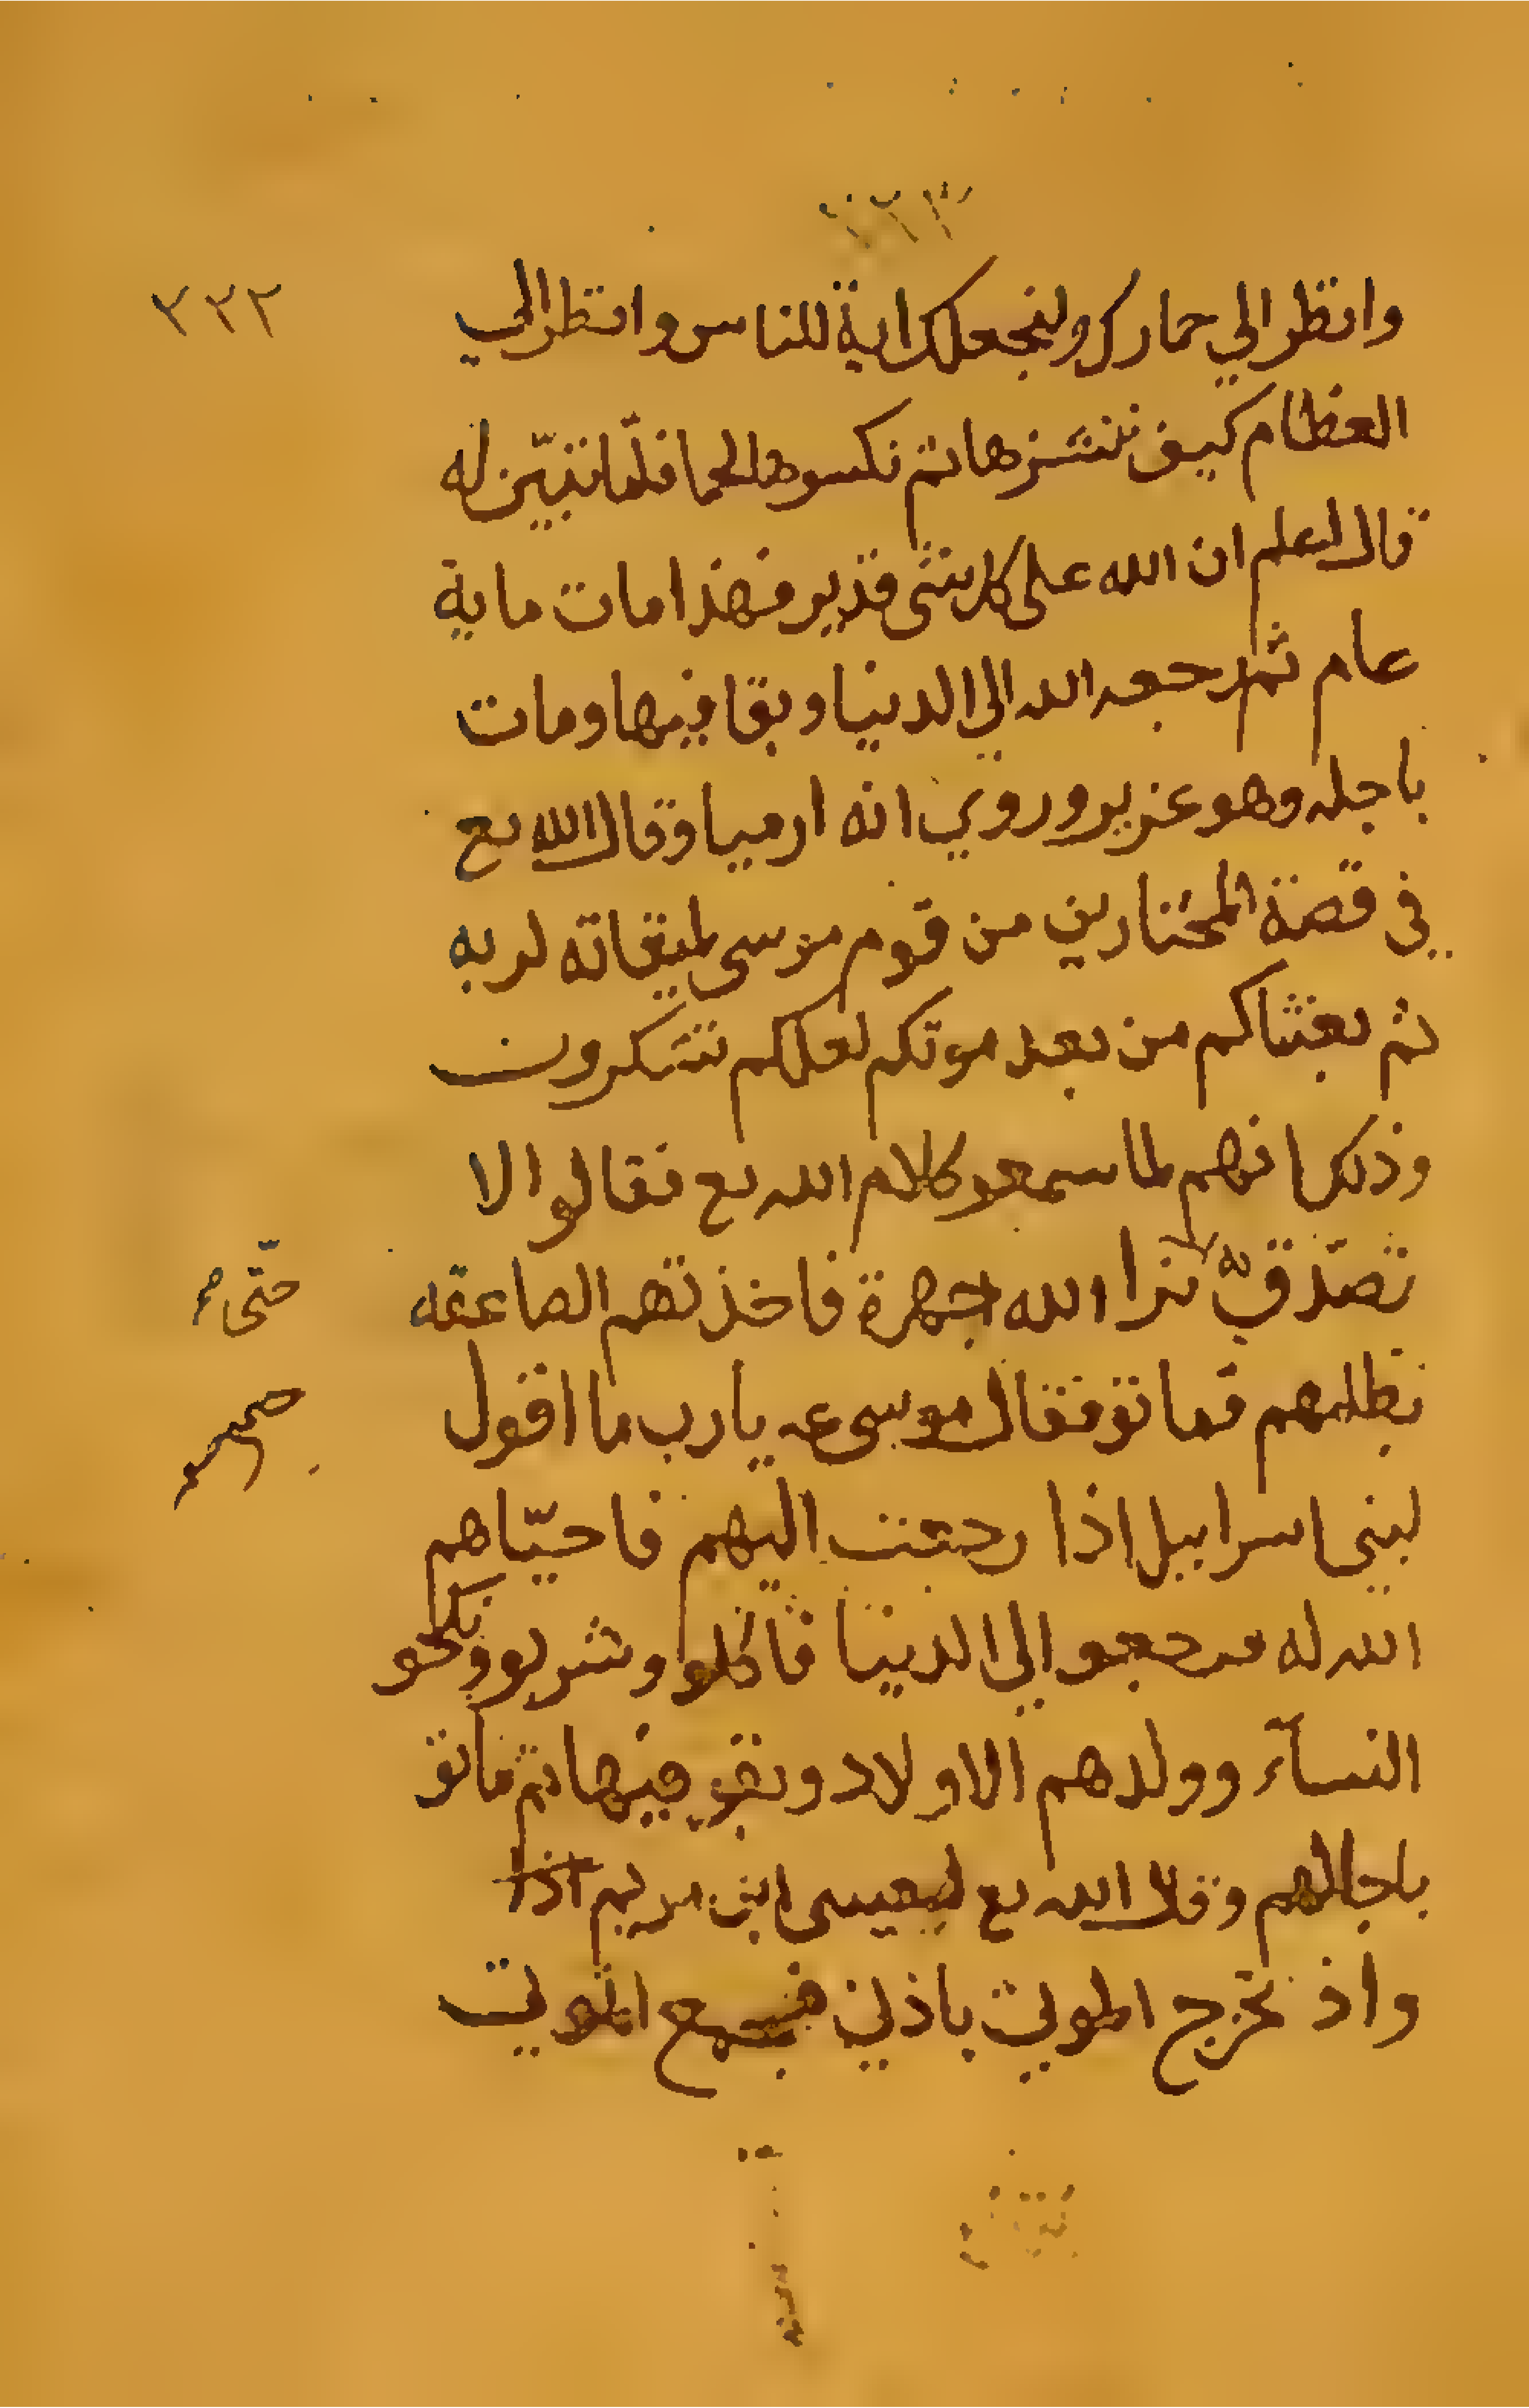 ٣٣٢
وانظر الي حمارك ولنجعلك اية للناس وانظر الي
العظام كيف ننشزها ثم نكسوها لحما فلمّا تبيّن له
قال اعلم ان الله على كل شئ قدير فهذا مات ماية
عام ثم رجعه الله الي الدنيا وبقا فيها ومات
باجله وهو عزير وروي انه ارميا وقال الله تع
في قصة المختارين من قوم موسى لميقاته لربه
ثم بعثناكم من بعد موتكم لعلكم تشكرون
وذلك انهم لما سمعو كلام الله تع فقالوا لا
نصدّق به نرا الله جهرة فاخذتهم الصاعقه
حتّى صح
بظلمهم فماتو فقال موسى عه يارب ما اقول
لبنى اسراييل اذا رجعت اليهم فاحيّاهم
الله له فرجعو الي الدنيا فاكلو وشربو ونكحو
النسآء وولد لهم الاولاد وبقو فيها ثم ماتو
باجالهم وقال الله تع لعيسى ابن مريم
واذ تخرج الموتي باذني فجميع الموتي